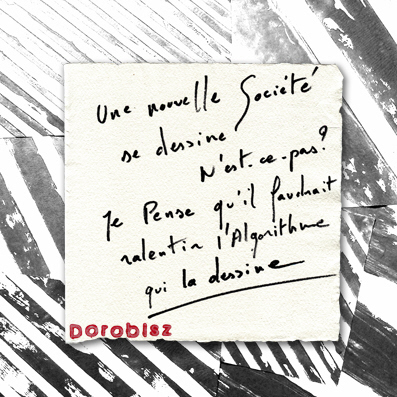 Une nouvelle Société
se dessine
N'est-ce-pas?
Je Pense qu'il faudrait
ralentir l'Algorithme
qui la dessine
DOROBISZ